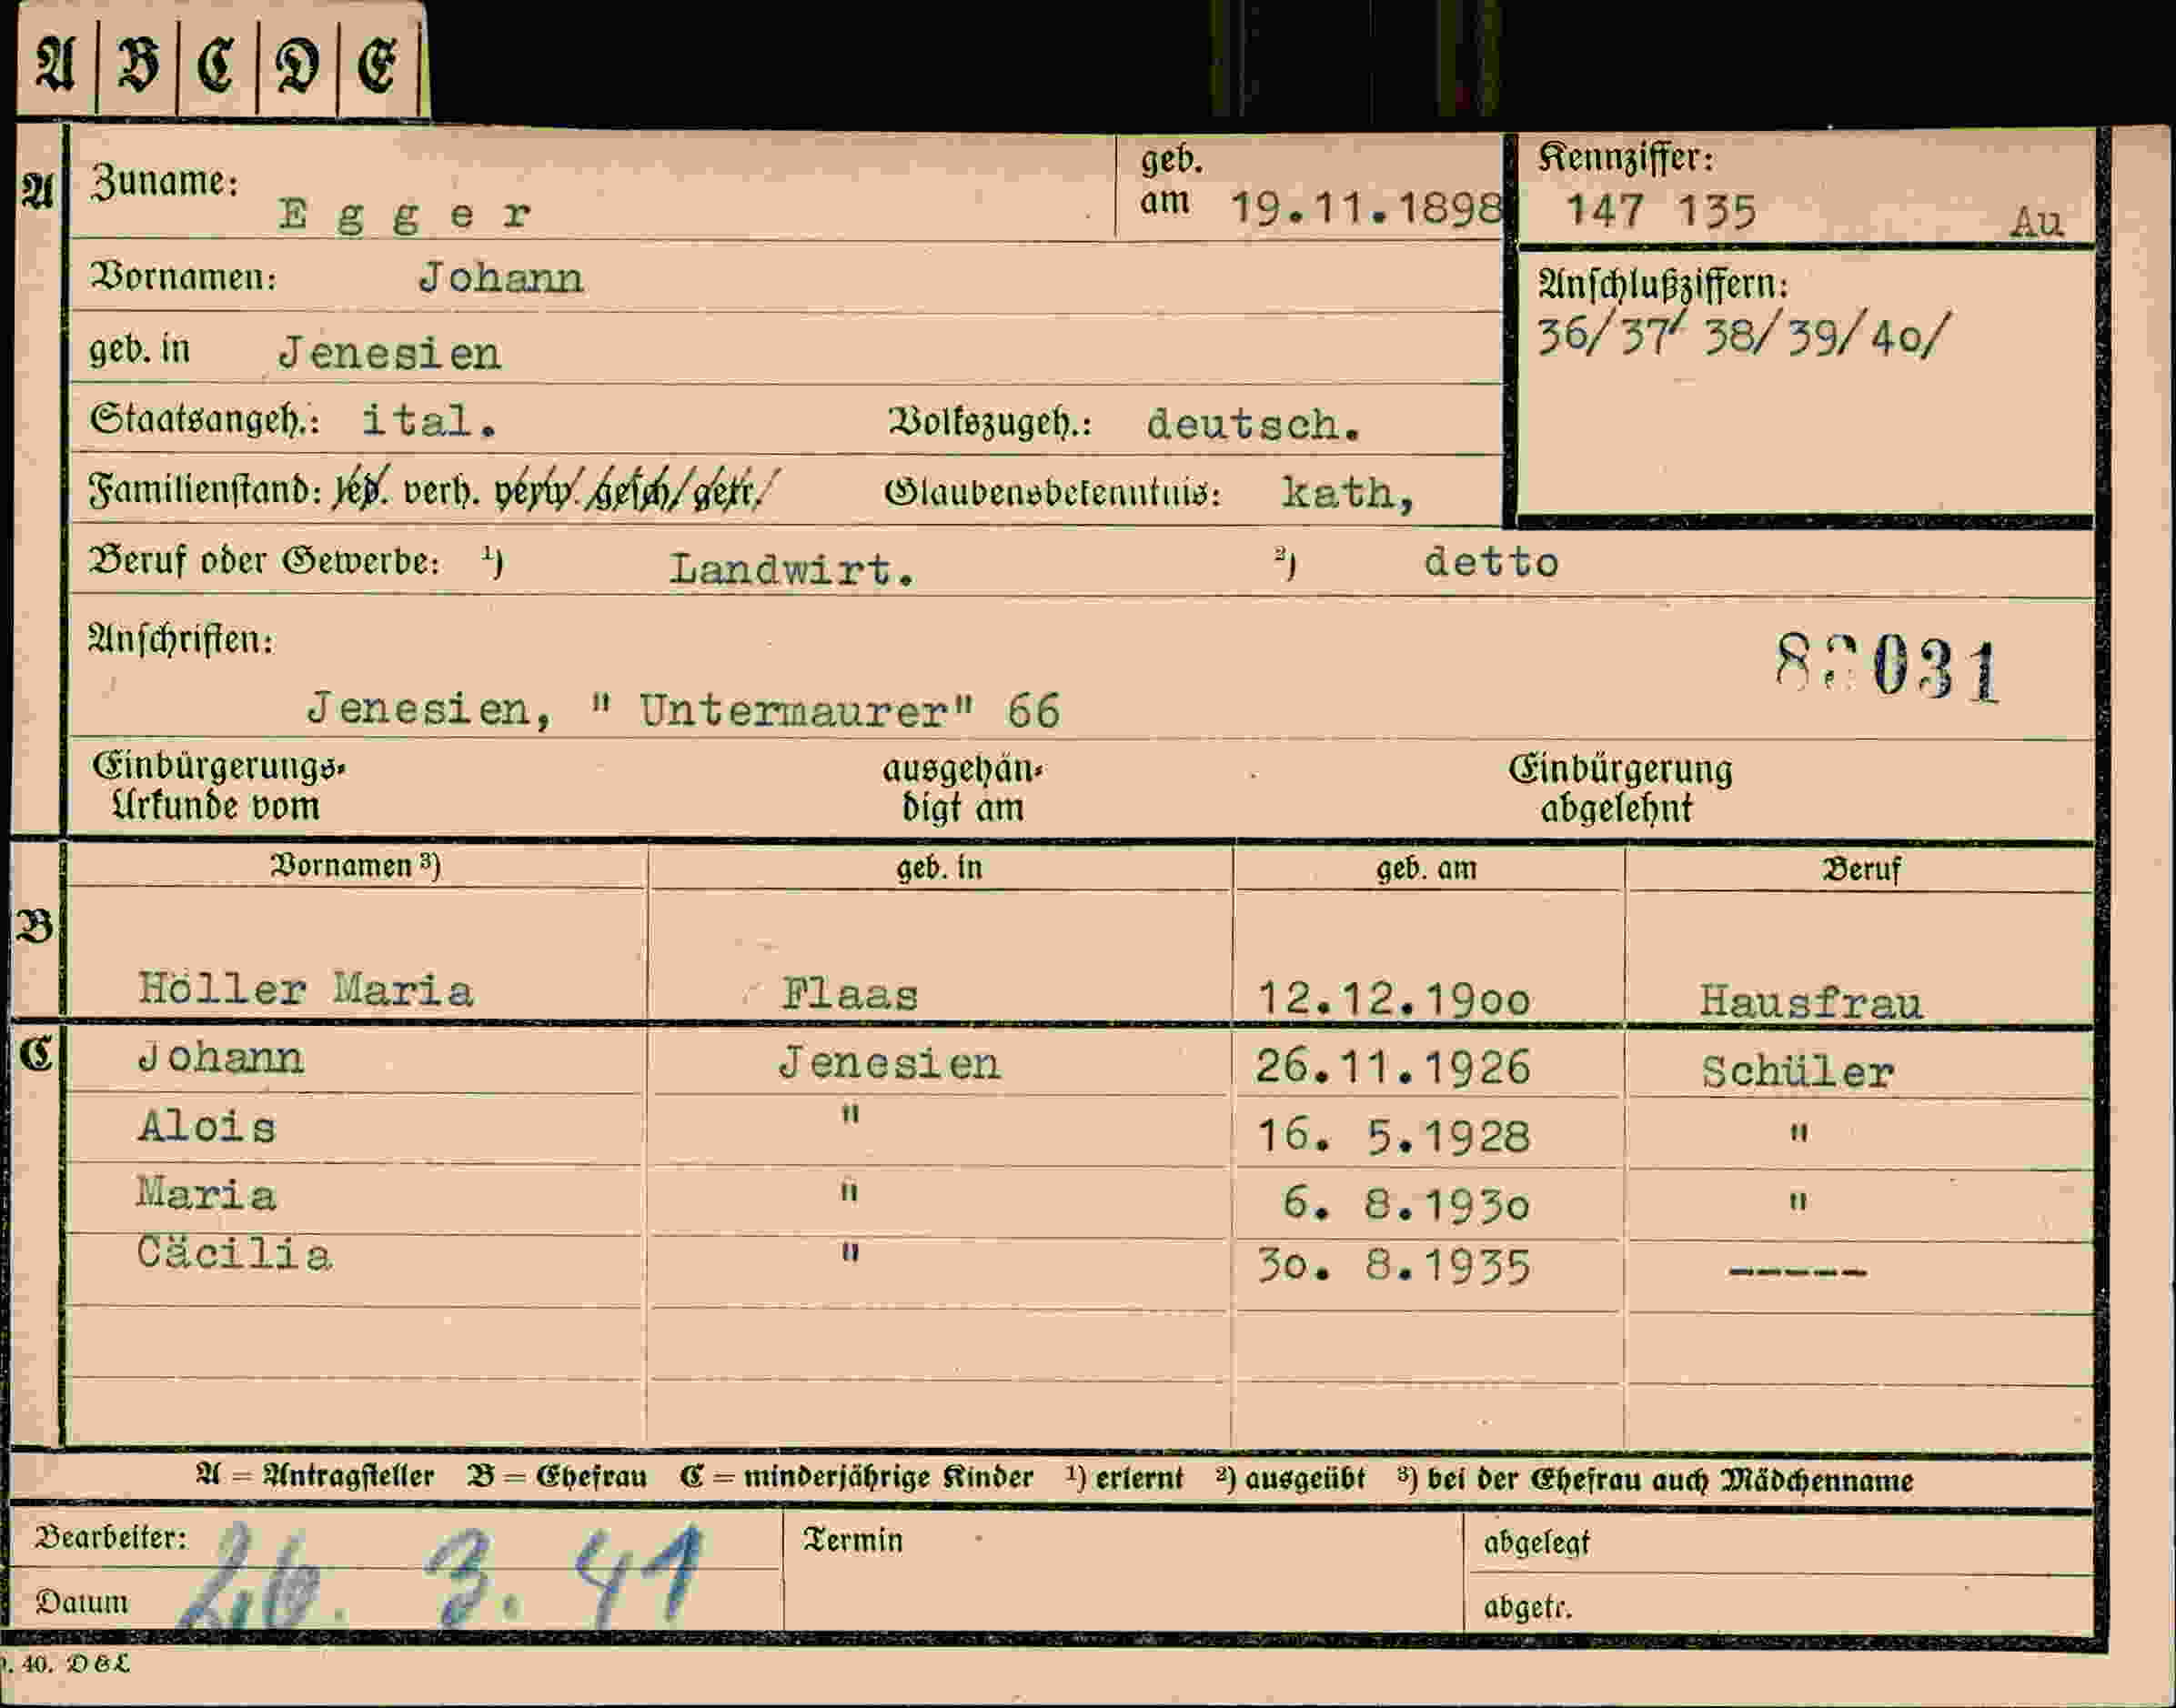 A B C D E
A Zuname: Egger geb. am 19.11.1898 Kennziffer: 147 135 Au
Vornamen: Johann Anschlußziffern:
36/37/ 38/39/40/
geb. in Jenesien
Staatsangeh.: ital. Volkszugeh.: deutsch.
Familienstand: led. verh. verw. gesch. getr. Glaubensbekenntnis: kath,
Beruf oder Gewerbe: ¹) Landwirt. ²) detto
Anschriften:
Jenesien, " Untermaurer" 66
Einbürgerungs- ausgehän- Einbürgerung
Urkunde vom digt am abgelehnt
Vornamen ³) geb. in geb. am Beruf
B
Höller Maria Flaas 12.12.1900 Hausfrau
C Johann Jenesien 26.11.1926 Schüler
Alois " 16. 5.1928 "
Maria " 6. 8.1930 "
Cäcilia " 30. 8.1935 -----
A = Antragsteller B = Ehefrau C = minderjährige Kinder ¹) erlernt ²) ausgeübt ³) bei der Ehefrau auch Mädchenname
Bearbeiter: Termin abgelegt
Datum 26. 3. 41 abgetr.
40. D&L